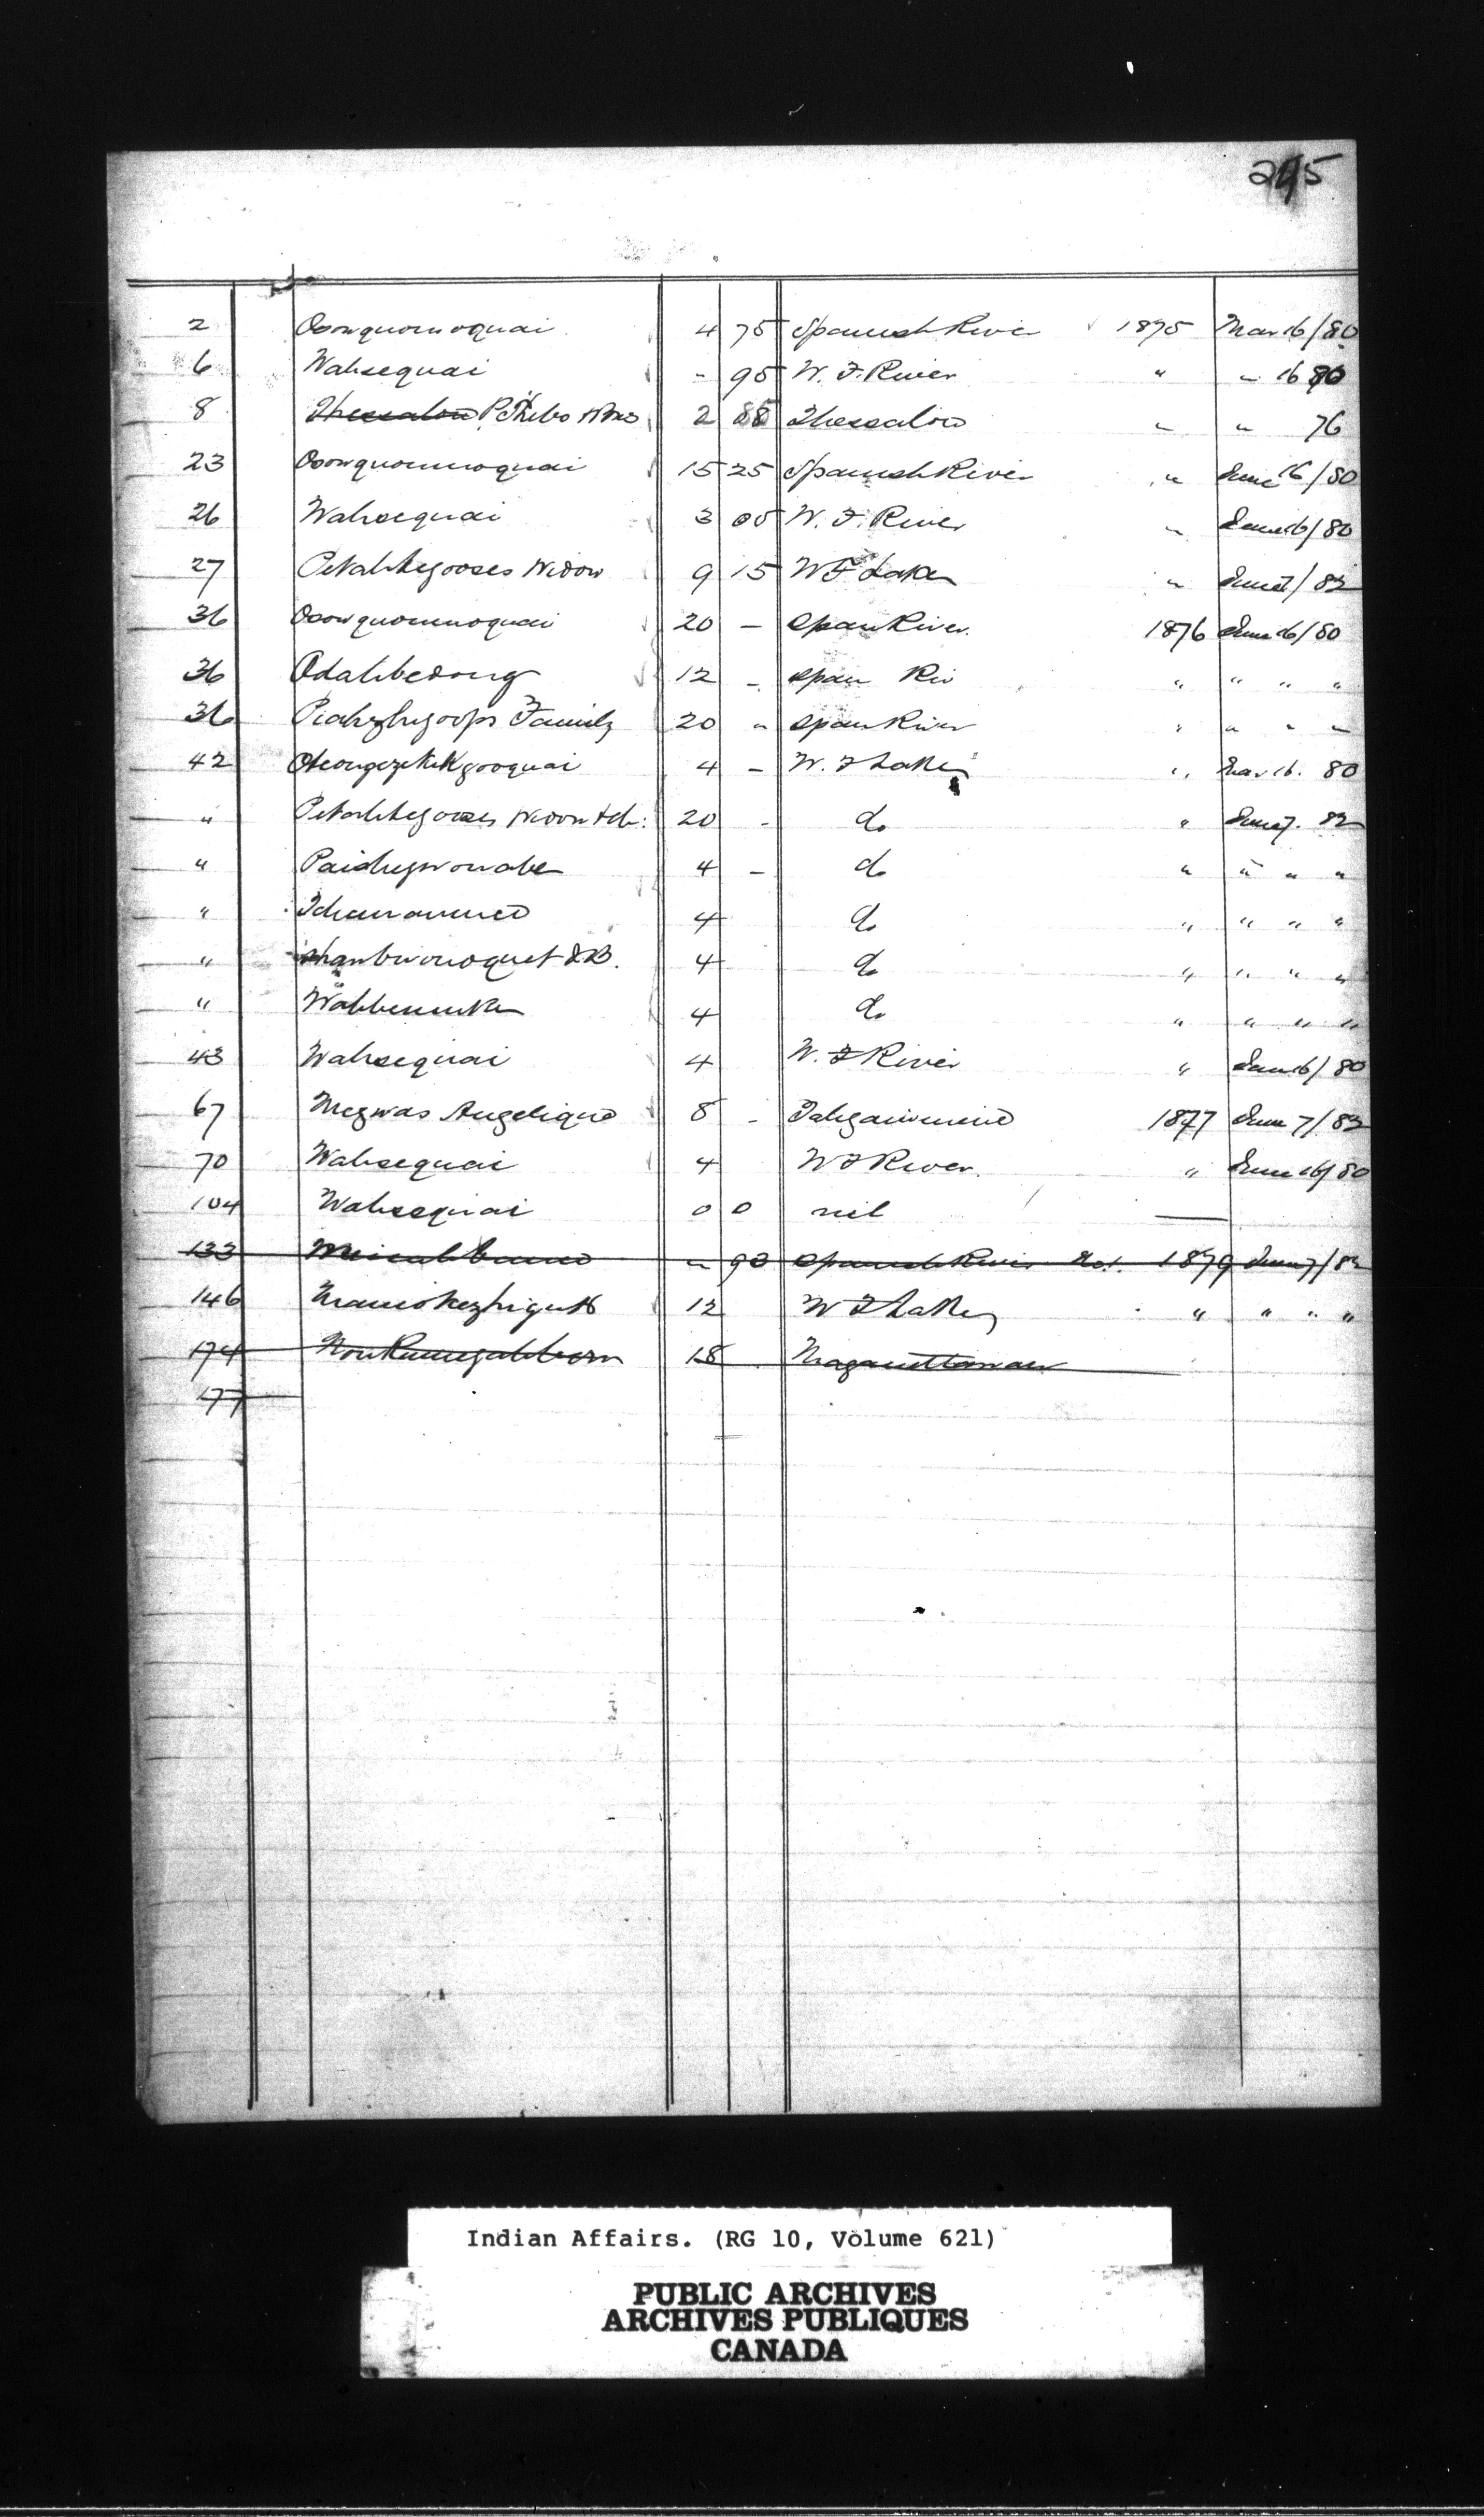 245
2 Osowquomoquai 4 75 Spanish River 1875 Mar 16/80
6 Wahsequai - 95 W. F. River " " 16 80
8 Thessalon P. Thebo 2 88 Thessalon " " 76
23 Osowquomoquai 15 25 Spanish River " June 16/80
26 Wahsequai 3 05 W. F. River " June 16/80
27 Petahtegooses Widow 9 15 W F Lake " June 7/82
36 Osowquomoquai 20 - Span River. 1876 June 16/80
36 Odahbedong 12 - Span Riv " " " "
36 Family 20 " Span River " " " "
42 4 - W. F Lake " Mar 16. 80
" Petahtegooses Widow & ch: 20 - do " June 7. 82
" 4 - do " " " "
" 4 do " " " "
" 4 do " " " "
" 4 do " " " "
43 Wahsequai 4 W. F River " June 16/80
67 Megwas Angelique 8 - Tahgaiwinini 1877 June 7/82
70 Wahsequai 4 W F River. " June 16/80
104 Wahsequai 0 0 nil —
133 " 90 Spanish River 1879 June 7/82
146 12 W F Lake " " " "
174 18
177
Indian Affairs. (RG 10, Volume 621)
PUBLIC ARCHIVES
ARCHIVES PUBLIQUES
CANADA